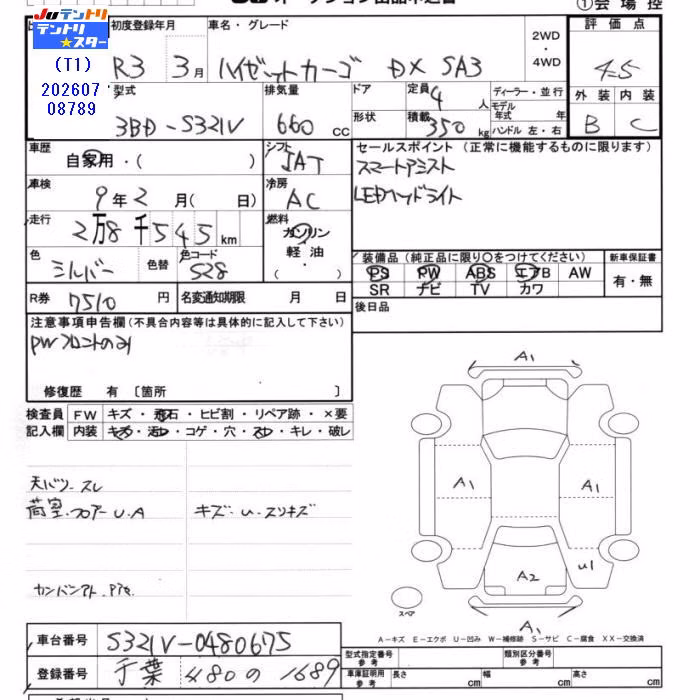 ①会場控
JUテントリ
テントリ
★スター
(T1)
202607
08789
初度登録年月
R3 3月
車名・グレード
ハイゼットカーゴ DX SA3
2WD
・
4WD
評価点
4.5
外装 内装
B C
型式
3BD-S321V
排気量
660 cc
ドア
形状
定員 4 人
積載 350 kg
ディーラー・並行
モデル
年式 年
ハンドル 左・右
車歴
自家用・( )
シフト
IAT
車検
9年2月( 日)
冷房
AC
走行
2万8千545km
燃料
ガソリン
・
軽油
・
( )
色
シルバー
色替
色コード
S28
R券 7510円
名変通知期限 月 日
セールスポイント (正常に機能するものに限ります)
スマートアシスト
LEDヘッドライト
装備品 (純正品に限り〇をつけてください)
PS PW ABS エアB AW
SR ナビ TV カワ
新車保証書
有・無
後日品
注意事項申告欄(不具合内容等は具体的に記入して下さい)
PWフロントのみ
修復歴 有 〔箇所 〕
検査員 FW キズ・飛石・ヒビ割・リペア跡・×要
記入欄 内装 キズ・汚レ・コゲ・穴・スレ・キレ・破レ
天バリ.スレ
荷室.フロアーU.A
キズ.U.スリキズ
カンバンアト.Pテカ
A1
A1
A1
U1
A2
A1
スペア
A-キズ E-エクボ U-凹み W-補修跡 S-サビ C-腐食 XX-交換済
車台番号 S321V-0480675
登録番号 千葉 480 の 1689
型式指定番号
参考
類別区分番号
参考
車庫証明用
参考
長さ cm 幅 cm 高さ cm